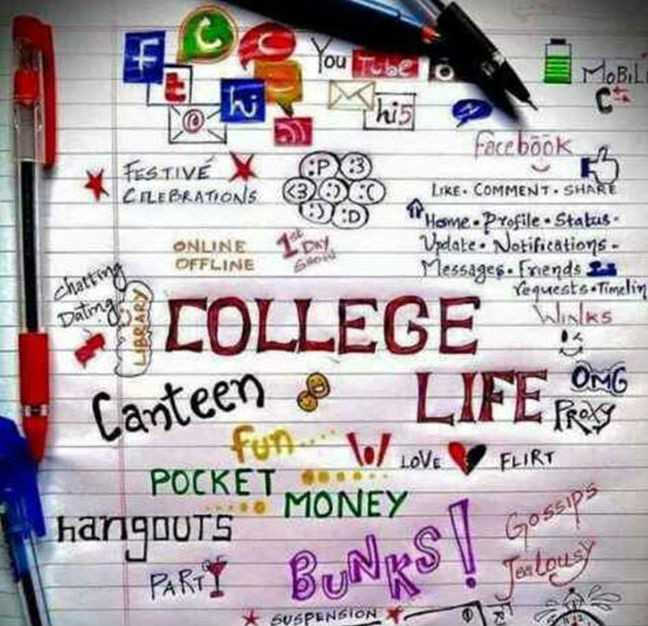 f
t
You Tube
@
hi
hi5
MOBiLi
Facebook
LIKE · COMMENT · SHARE
Home · Profile · Status ·
Update · Notifications -
Messages · Friends
requests · Timelin
FESTIVE
CELEBRATIONS
:P :3
<3 :) :(
:) :D
ONLINE
OFFLINE
1st
DAY
SHOW
chatting
Dating
LIBRARY
COLLEGE
LIFE
Winks
OMG
PROXY
Canteen
fun....
LOVE
FLIRT
POCKET
MONEY
hangouts
PARTY
BUNKS!
Gossips
Jealousy
SUSPENSION